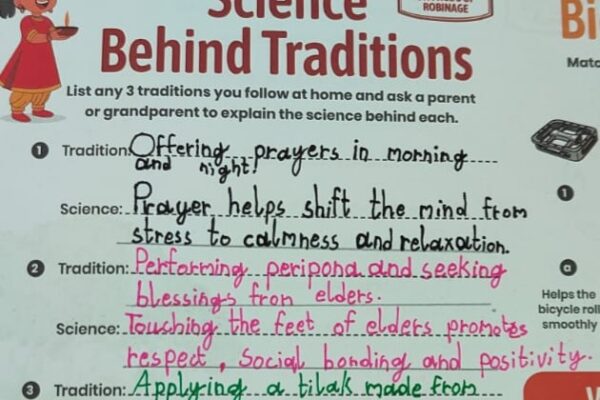 Science
ROBINAGE
Behind Traditions
List any 3 traditions you follow at home and ask a parent
or grandparent to explain the science behind each.
1 Tradition: Offering prayers in morning
and night.
Science: Prayer helps shift the mind from
stress to calmness and relaxation.
2 Tradition: Performing peripona and seeking
blessings fron elders.
Science: Touching the feet of elders promotes
respect, social bonding and positivity.
3 Tradition: Applying a tilak made from
Bi
Matc
1
a
Helps the
bicycle roll
smoothly